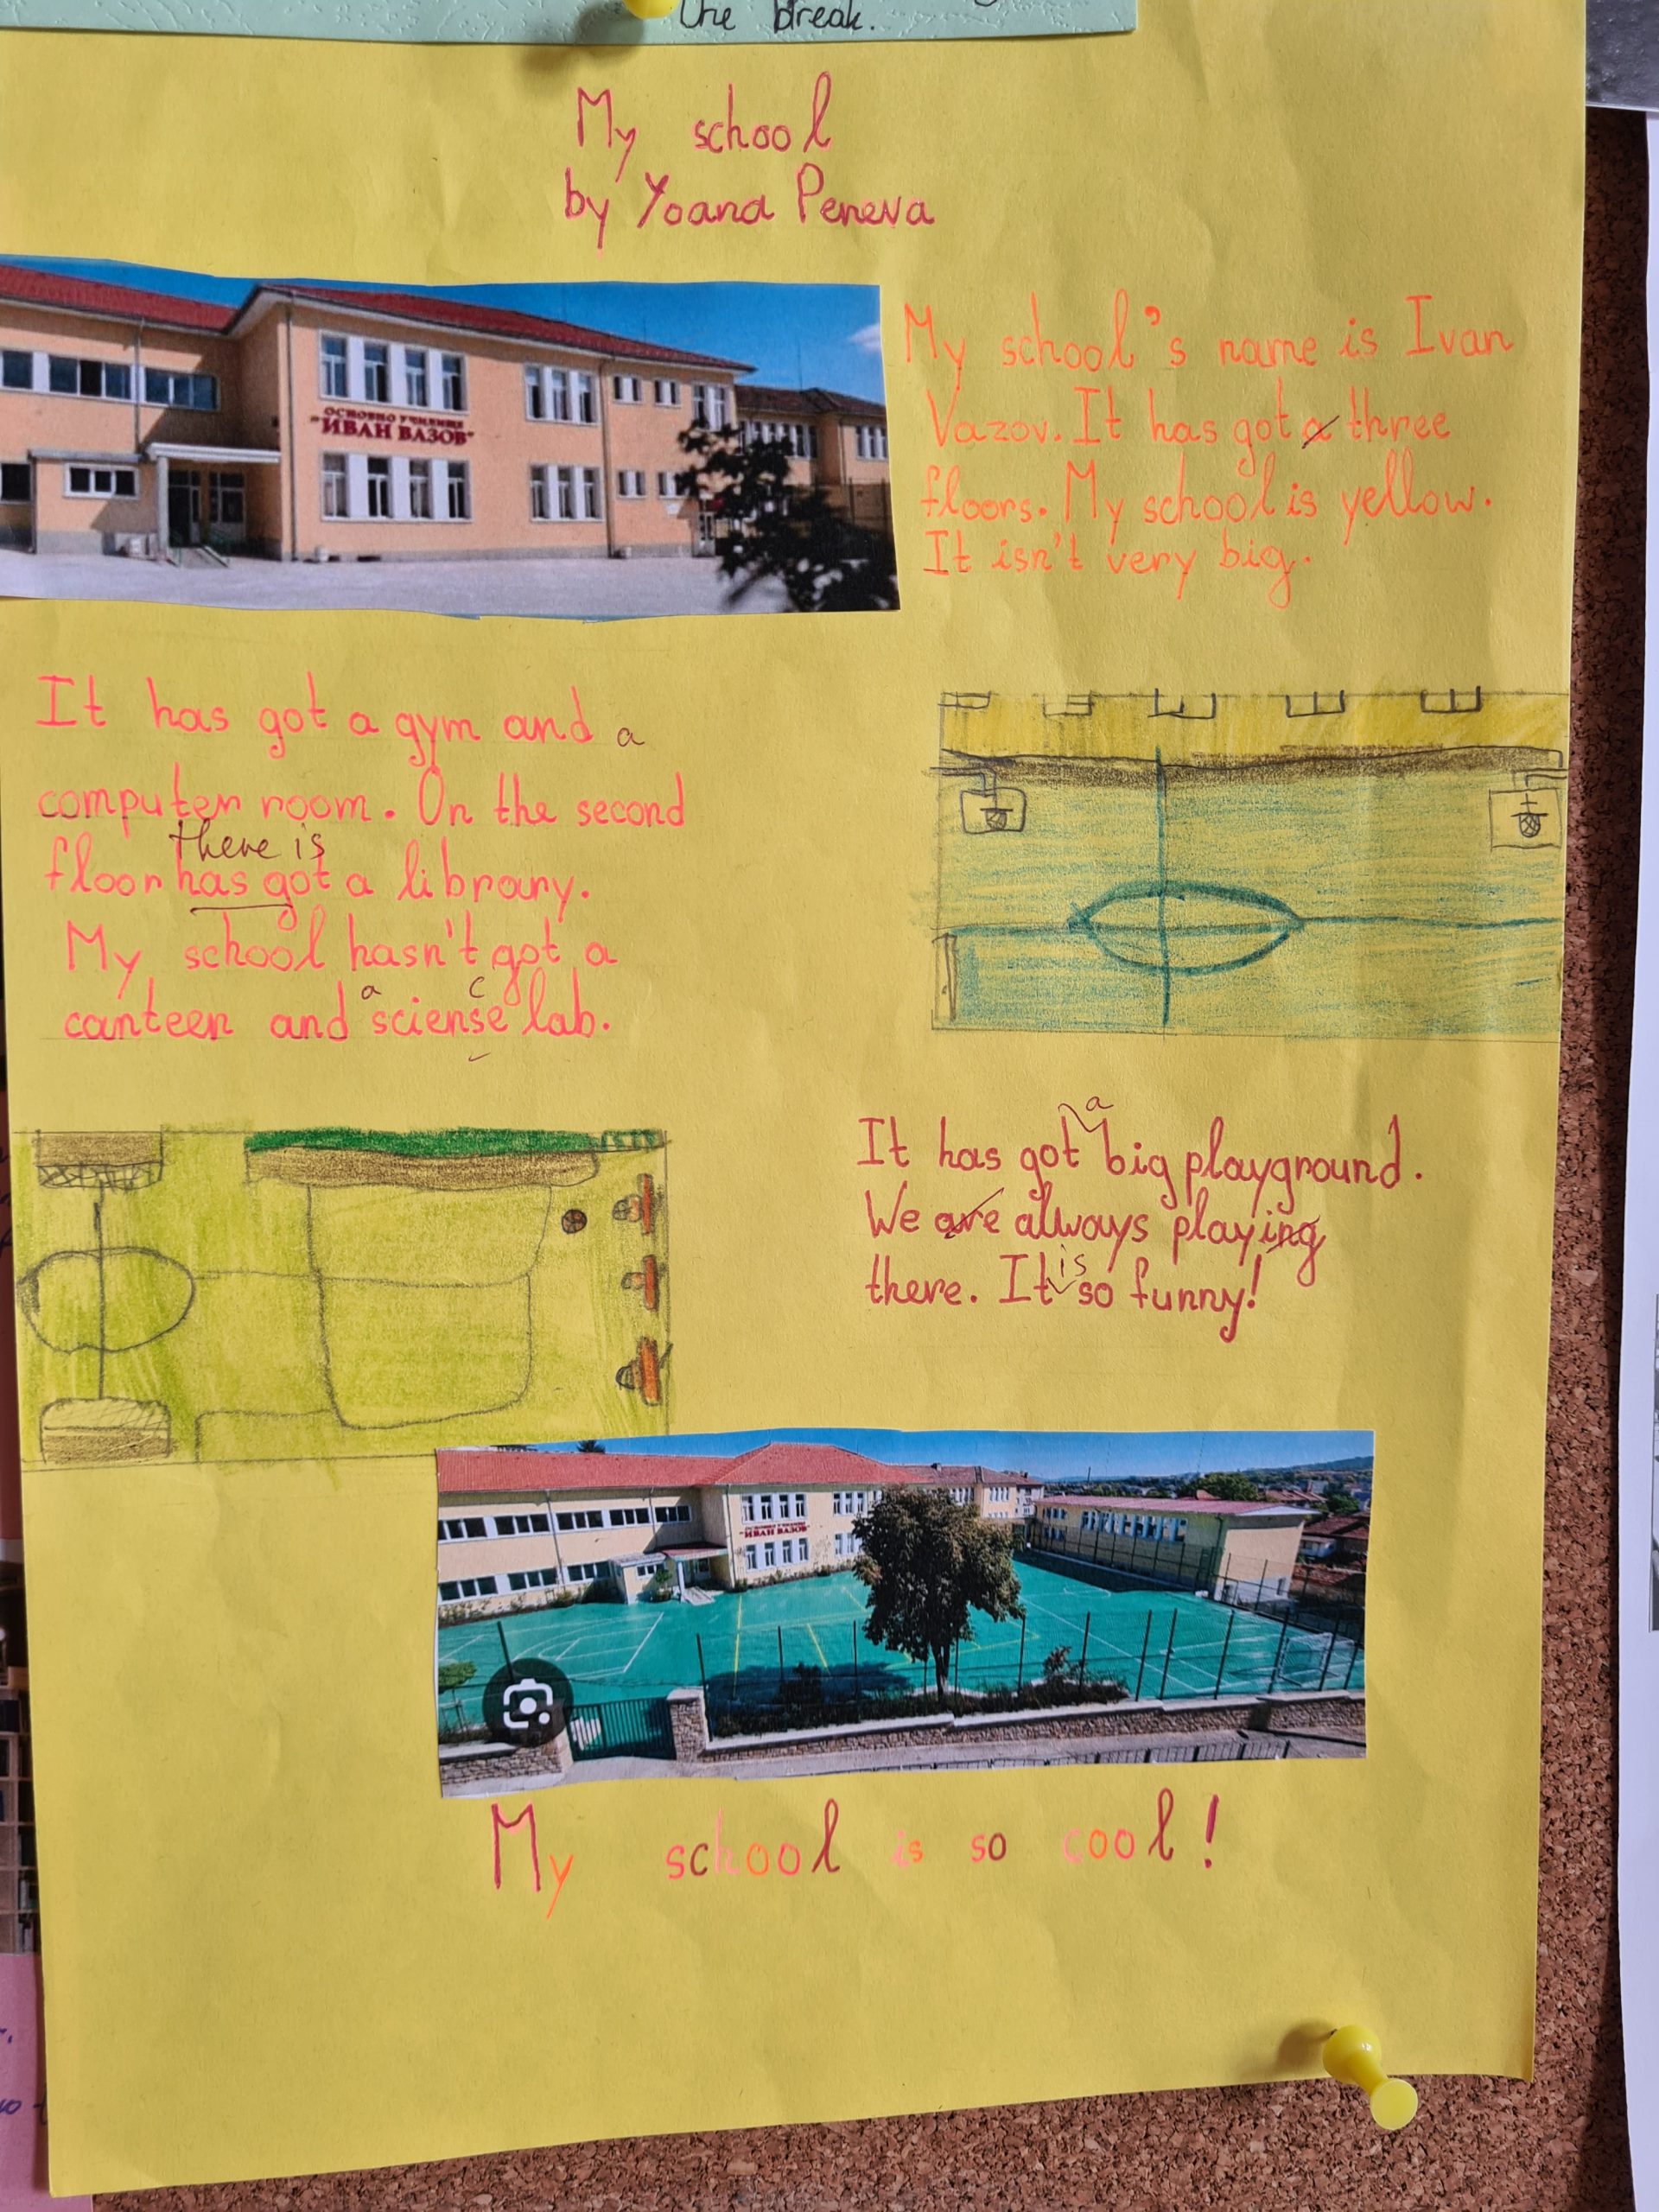 the break.
My school
by Yoana Peneva
ОСНОВНО УЧИЛИЩЕ
"ИВАН ВАЗОВ"
My school's name is Ivan
Vazov. It has got a three
floors. My school is yellow.
It isn't very big.
It has got a gym and a
computer room. On the second
there is
floor has got a library.
My school hasn't got a
a c
canteen and sciense lab.
a
It has got big playground.
We are always playing
is
there. It so funny!
ОСНОВНО УЧИЛИЩЕ
"ИВАН ВАЗОВ"
My school is so cool!